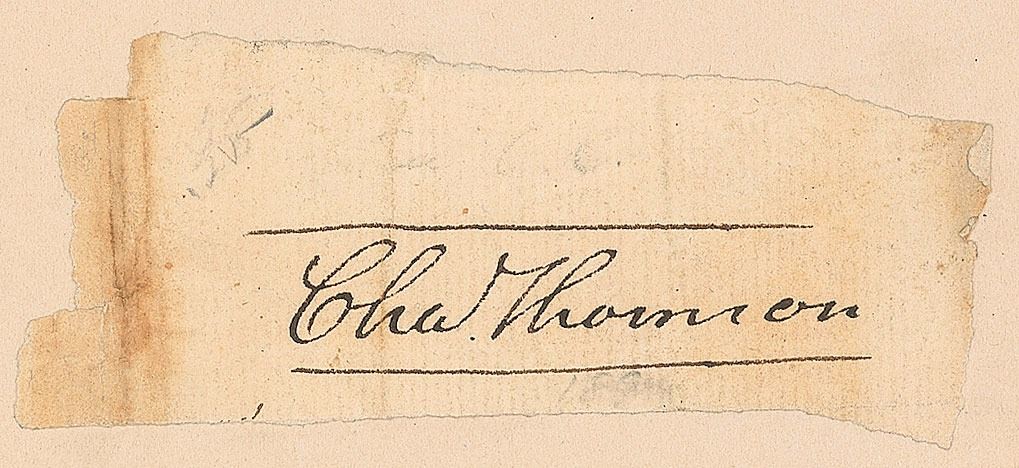 Chaˢ. Thomson